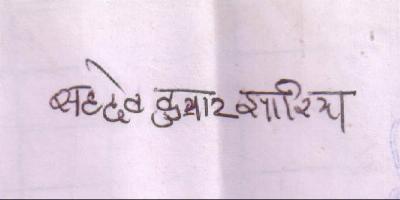 सहदेव कुमार सारिय